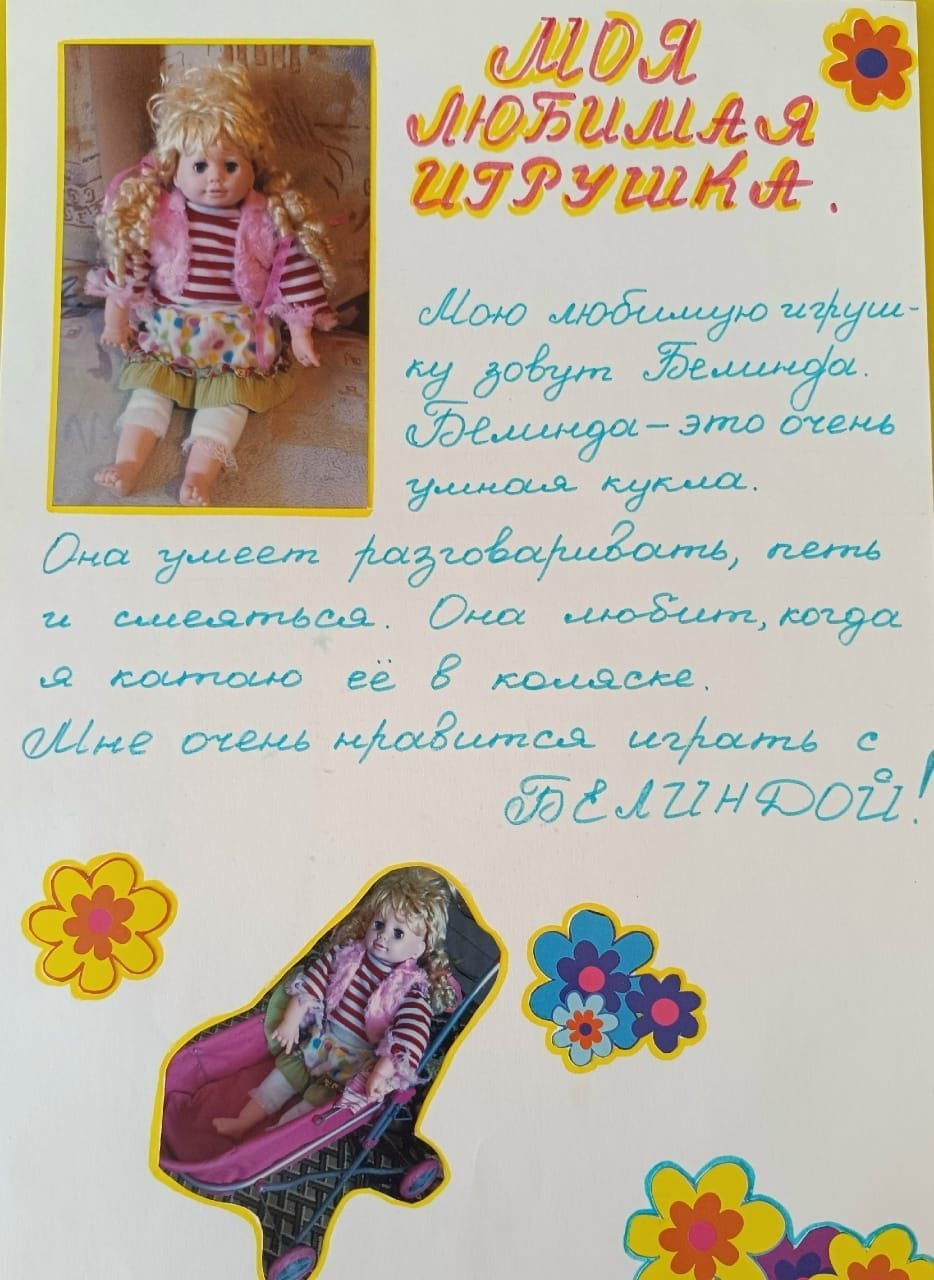 МОЯ
ЛЮБИМАЯ
ИГРУШКА.
Мою любимую игруш-
ку зовут Белинда.
Белинда – это очень
умная кукла.
Она умеет разговаривать, петь
и смеяться. Она любит, когда
я катаю её в коляске.
Мне очень нравится играть с
БЕЛИНДОЙ!